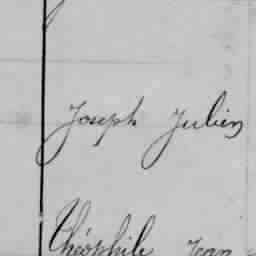 Joseph Julien
Théophile Jean